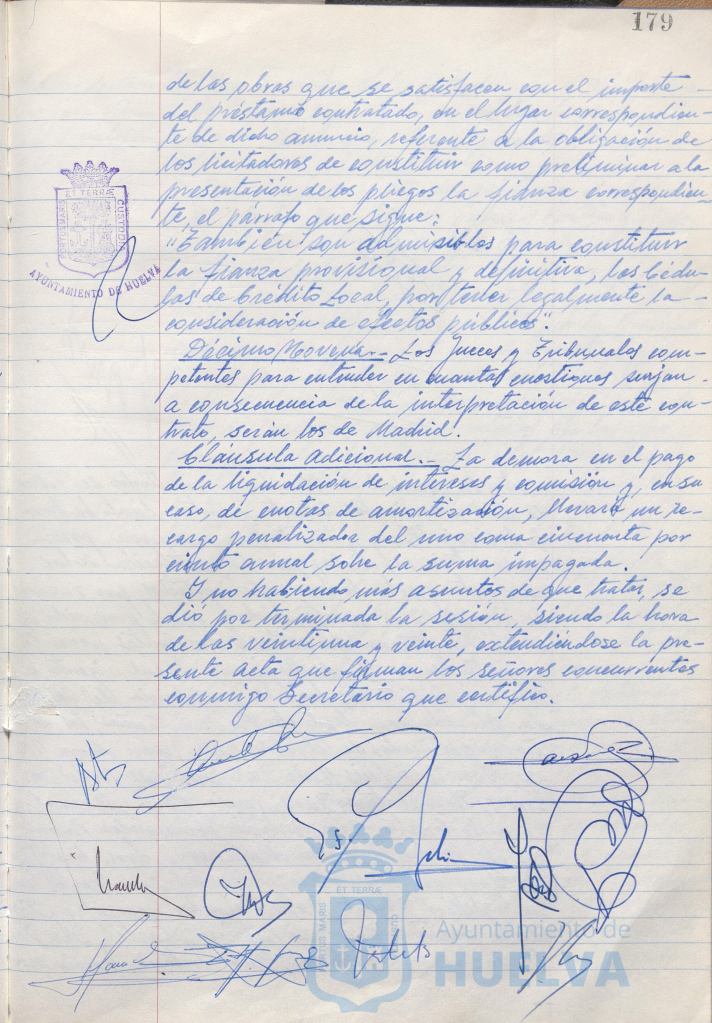 179
de las obras que se satisfacen con el importe
del préstamo contratado, en el lugar correspondien-
te de dicho anuncio, referente a la obligación de
los licitadores de constituir como preliminar a la
presentación de los pliegos la fianza correspondien-
te, el párrafo que sigue:
"También son admisibles para constituir
la fianza provisional y definitiva, las Cédu-
las de Crédito Local, por tener legalmente la
consideración de efectos públicos".
Décimo Novena.- Los Jueces y Tribunales com-
petentes para entender en cuantas cuestiones surjan
a consecuencia de la interpretación de este con-
trato, serán los de Madrid.
Cláusula Adicional.- La demora en el pago
de la liquidación de intereses y comisión y, en su
caso, de cuotas de amortización, llevará un re-
cargo penalizador del uno coma cincuenta por
ciento anual sobre la suma impagada.
Y no habiendo más asuntos de que tratar, se
dió por terminada la sesión, siendo la hora
de las veintiuna y veinte, extendiéndose la pre-
sente acta que firman los señores concurrentes
conmigo Secretario que certifico.
PORTUS MARIS ET TERRÆ CUSTODIA
AYUNTAMIENTO DE HUELVA
ET TERRÆ
Ayuntamiento de
HUELVA